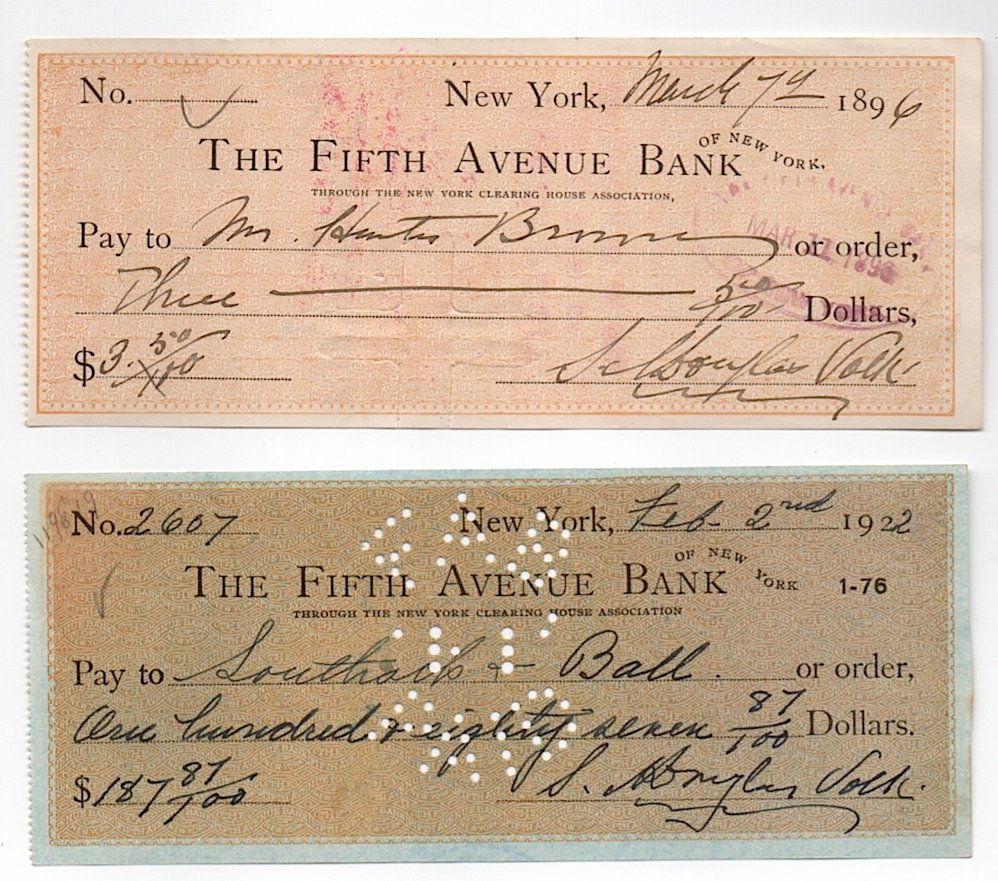 No. New York, March 7th 1896
THE FIFTH AVENUE BANK OF NEW YORK.
THROUGH THE NEW YORK CLEARING HOUSE ASSOCIATION,
Pay to Mr. Hunter Brown or order,
MAR 1896
Three 50/100 Dollars,
$3. 50/100 S. Douglas Volk
No. 2607 New York, Feb. 2nd 1922
THE FIFTH AVENUE BANK OF NEW YORK 1-76
THROUGH THE NEW YORK CLEARING HOUSE ASSOCIATION
Pay to Southack & Ball. or order,
One hundred & eighty seven 87/100 Dollars.
$187 87/100 S. Douglas Volk.